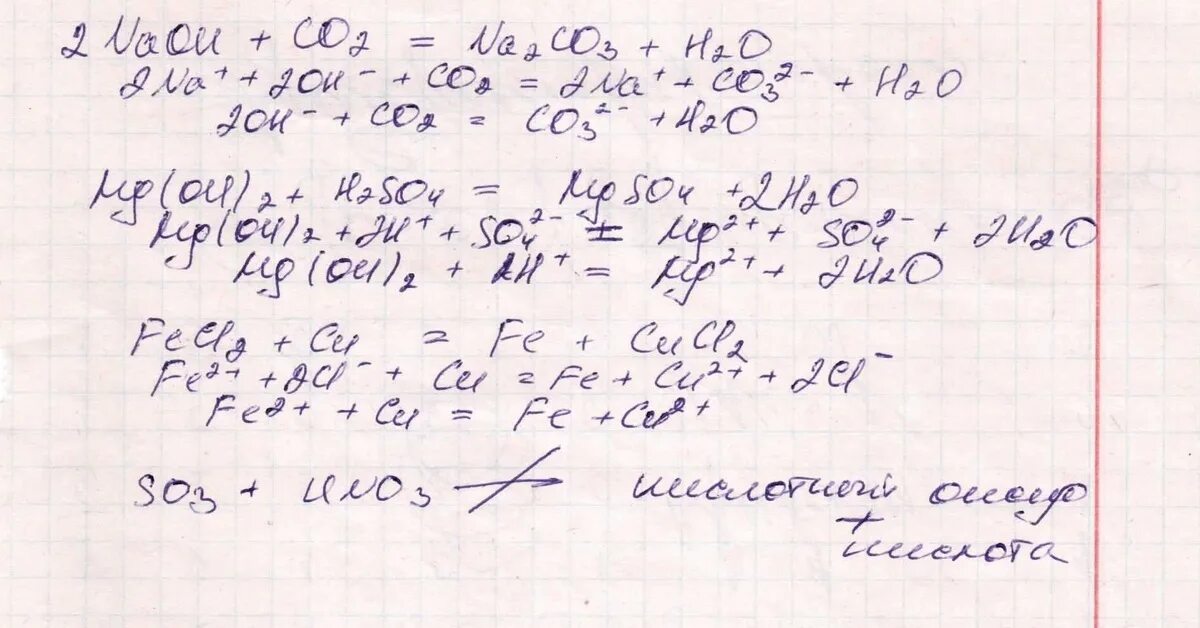 2NaOH + CO2 = Na2CO3 + H2O
2Na⁺ + 2OH⁻ + CO2 = 2Na⁺ + CO3²⁻ + H2O
2OH⁻ + CO2 = CO3²⁻ + H2O
Mg(OH)2 + H2SO4 = MgSO4 + 2H2O
Mg(OH)2 + 2H⁺ + SO4²⁻ = Mg²⁺ + SO4²⁻ + 2H2O
Mg(OH)2 + 2H⁺ = Mg²⁺ + 2H2O
FeCl2 + Cu = Fe + CuCl2
Fe²⁺ + 2Cl⁻ + Cu = Fe + Cu²⁺ + 2Cl⁻
Fe²⁺ + Cu = Fe + Cu²⁺
SO3 + HNO3 ↛ кислотный оксид
+
кислота